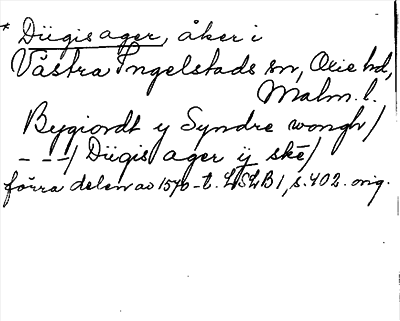 * Dügis ager, åker i
Västra Ingelstads sn, Oxie hd,
Malm. l.
Bygiordt y Syndre wongh/
- - -/ Dügis ager ÿ skē/
förra delen av 1570-t. LSLB 1, s. 402. orig.